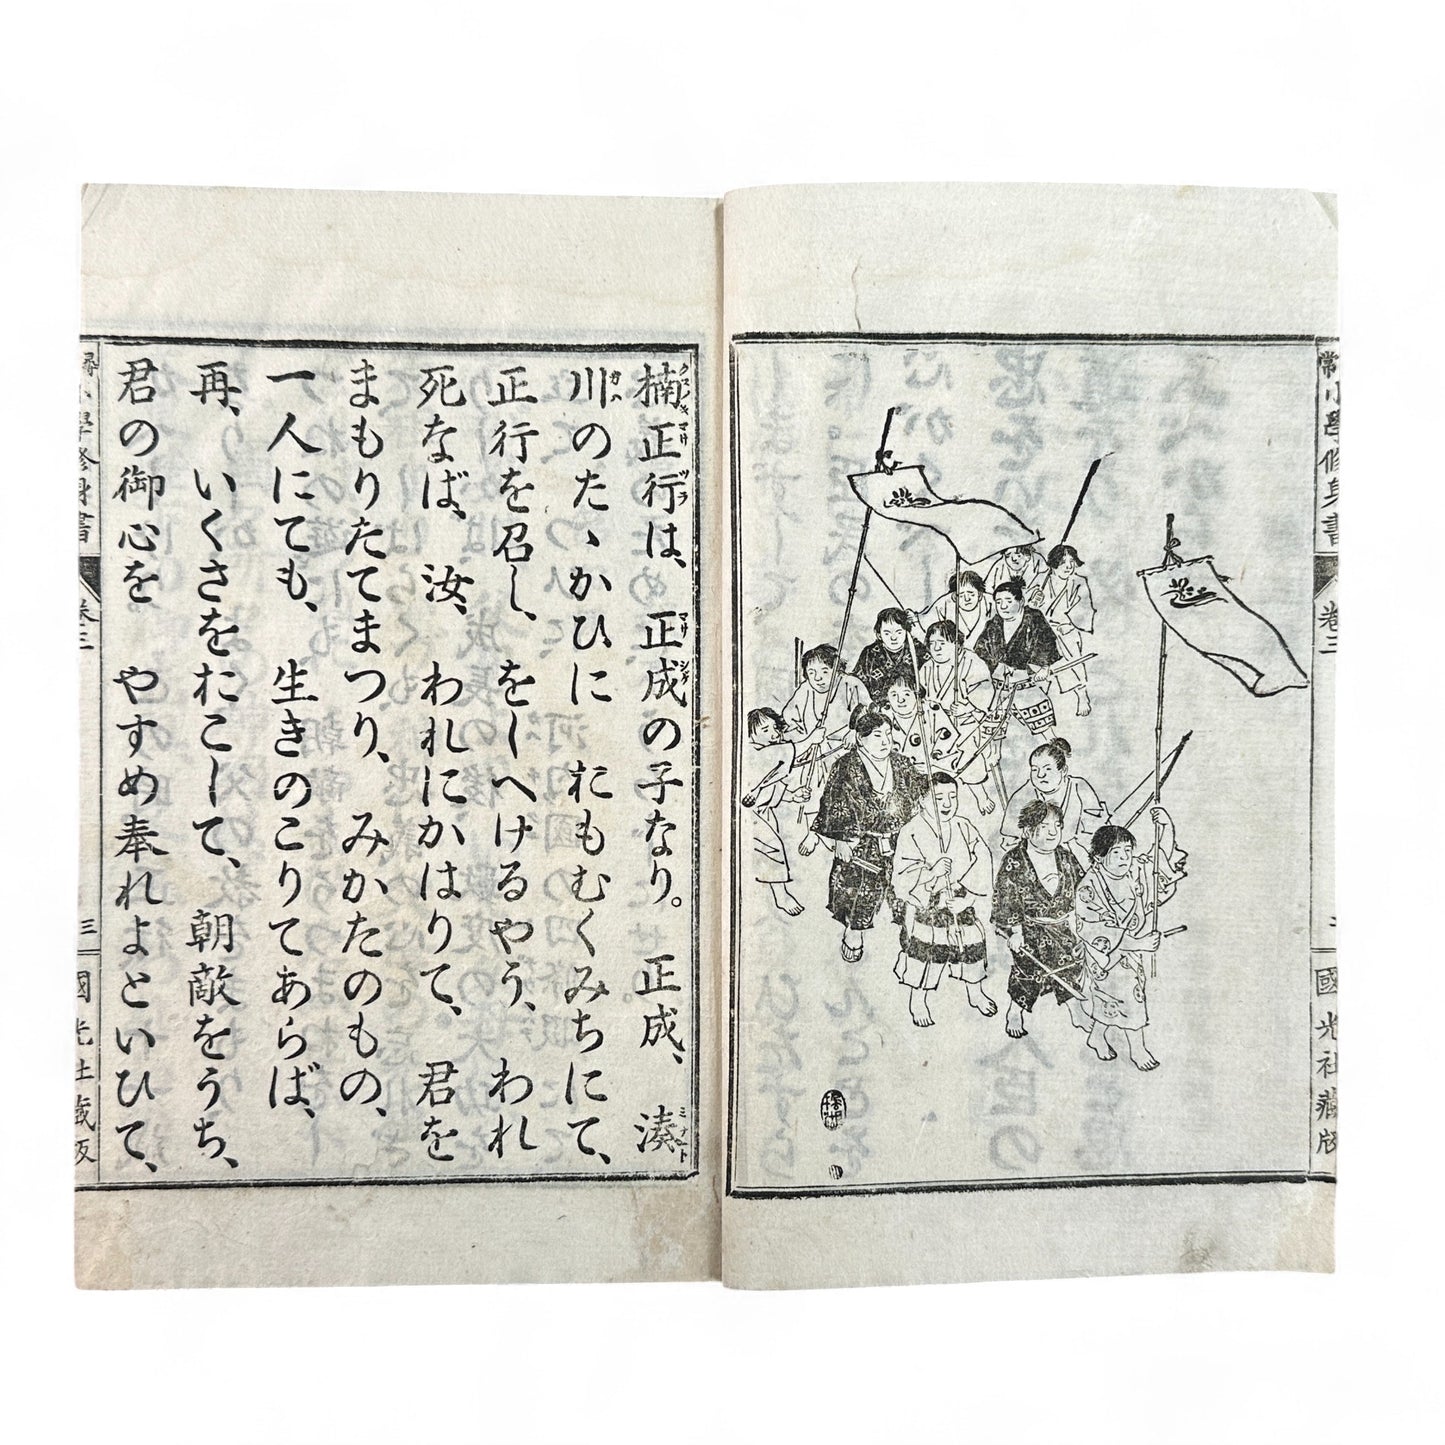 常小學修身書
卷三
國光社藏版
楠正行は、正成の子なり。正成、湊
クスノキマサツラ マサシゲ ミナト
川のたゝかひに おもむくみちにて、
ガハ
正行を召し、をしへけるやう、われ
死なば、汝、われにかはりて、君を
まもりたてまつり、みかたのもの、
一人にても、生きのこりてあらば、
再、いくさをおこして、朝敵をうち、
君の御心を やすめ奉れよといひて、
尋小學修身書
卷三
三
國光社藏版